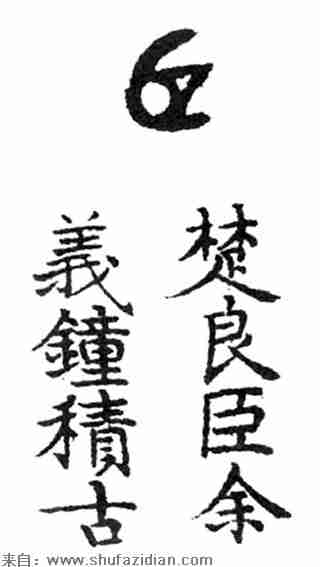 楚良臣余
義鐘積古
来自：www.shufazidian.com